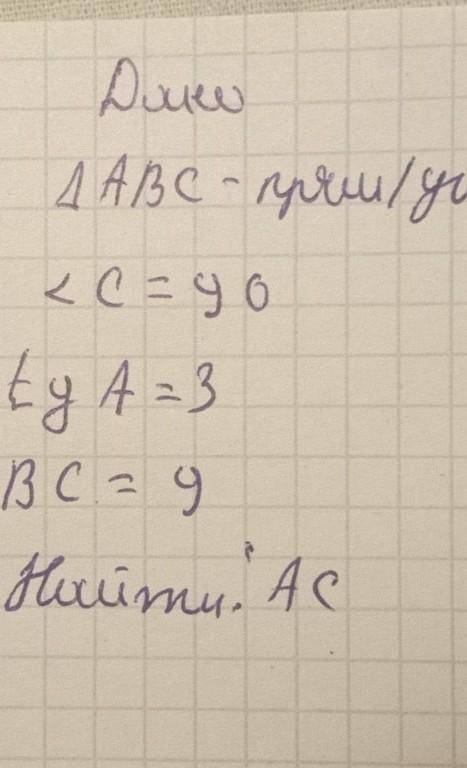 Дано
Δ ABC - прям/уг
< C = 90
tg A = 3
BC = 9
Найти: AC